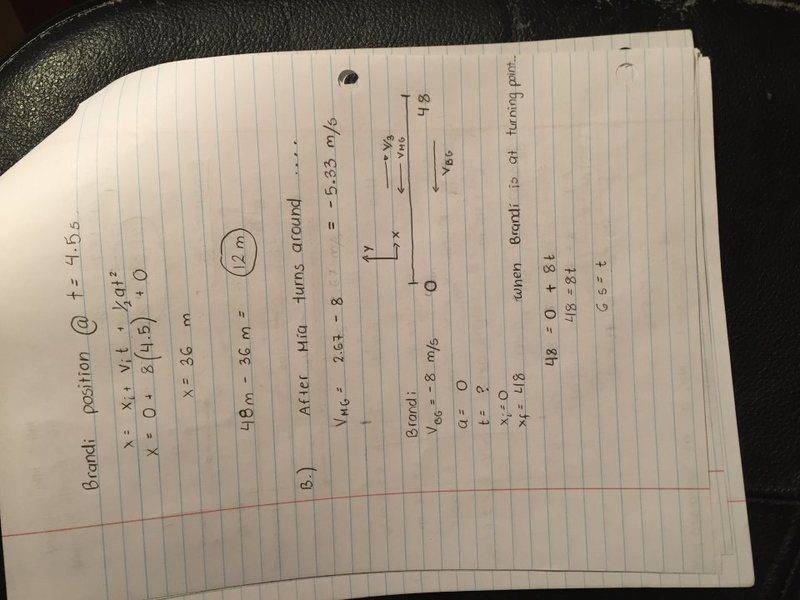 Brandi position @ t = 4.5s
x = xᵢ + vᵢt + ½at²
x = 0 + 8(4.5) + 0
x = 36 m
48m - 36 m = 12 m
B.) After Mia turns around ....
V_MG = 2.67 - 8 = -5.33 m/s
Brandi
V_BG = -8 m/s
a = 0
t = ?
xᵢ = 0
x_f = 48 when Brandi is at turning point..
y
x
V/3
V_MG
0 48
V_BG
48 = 0 + 8t
48 = 8t
6 s = t